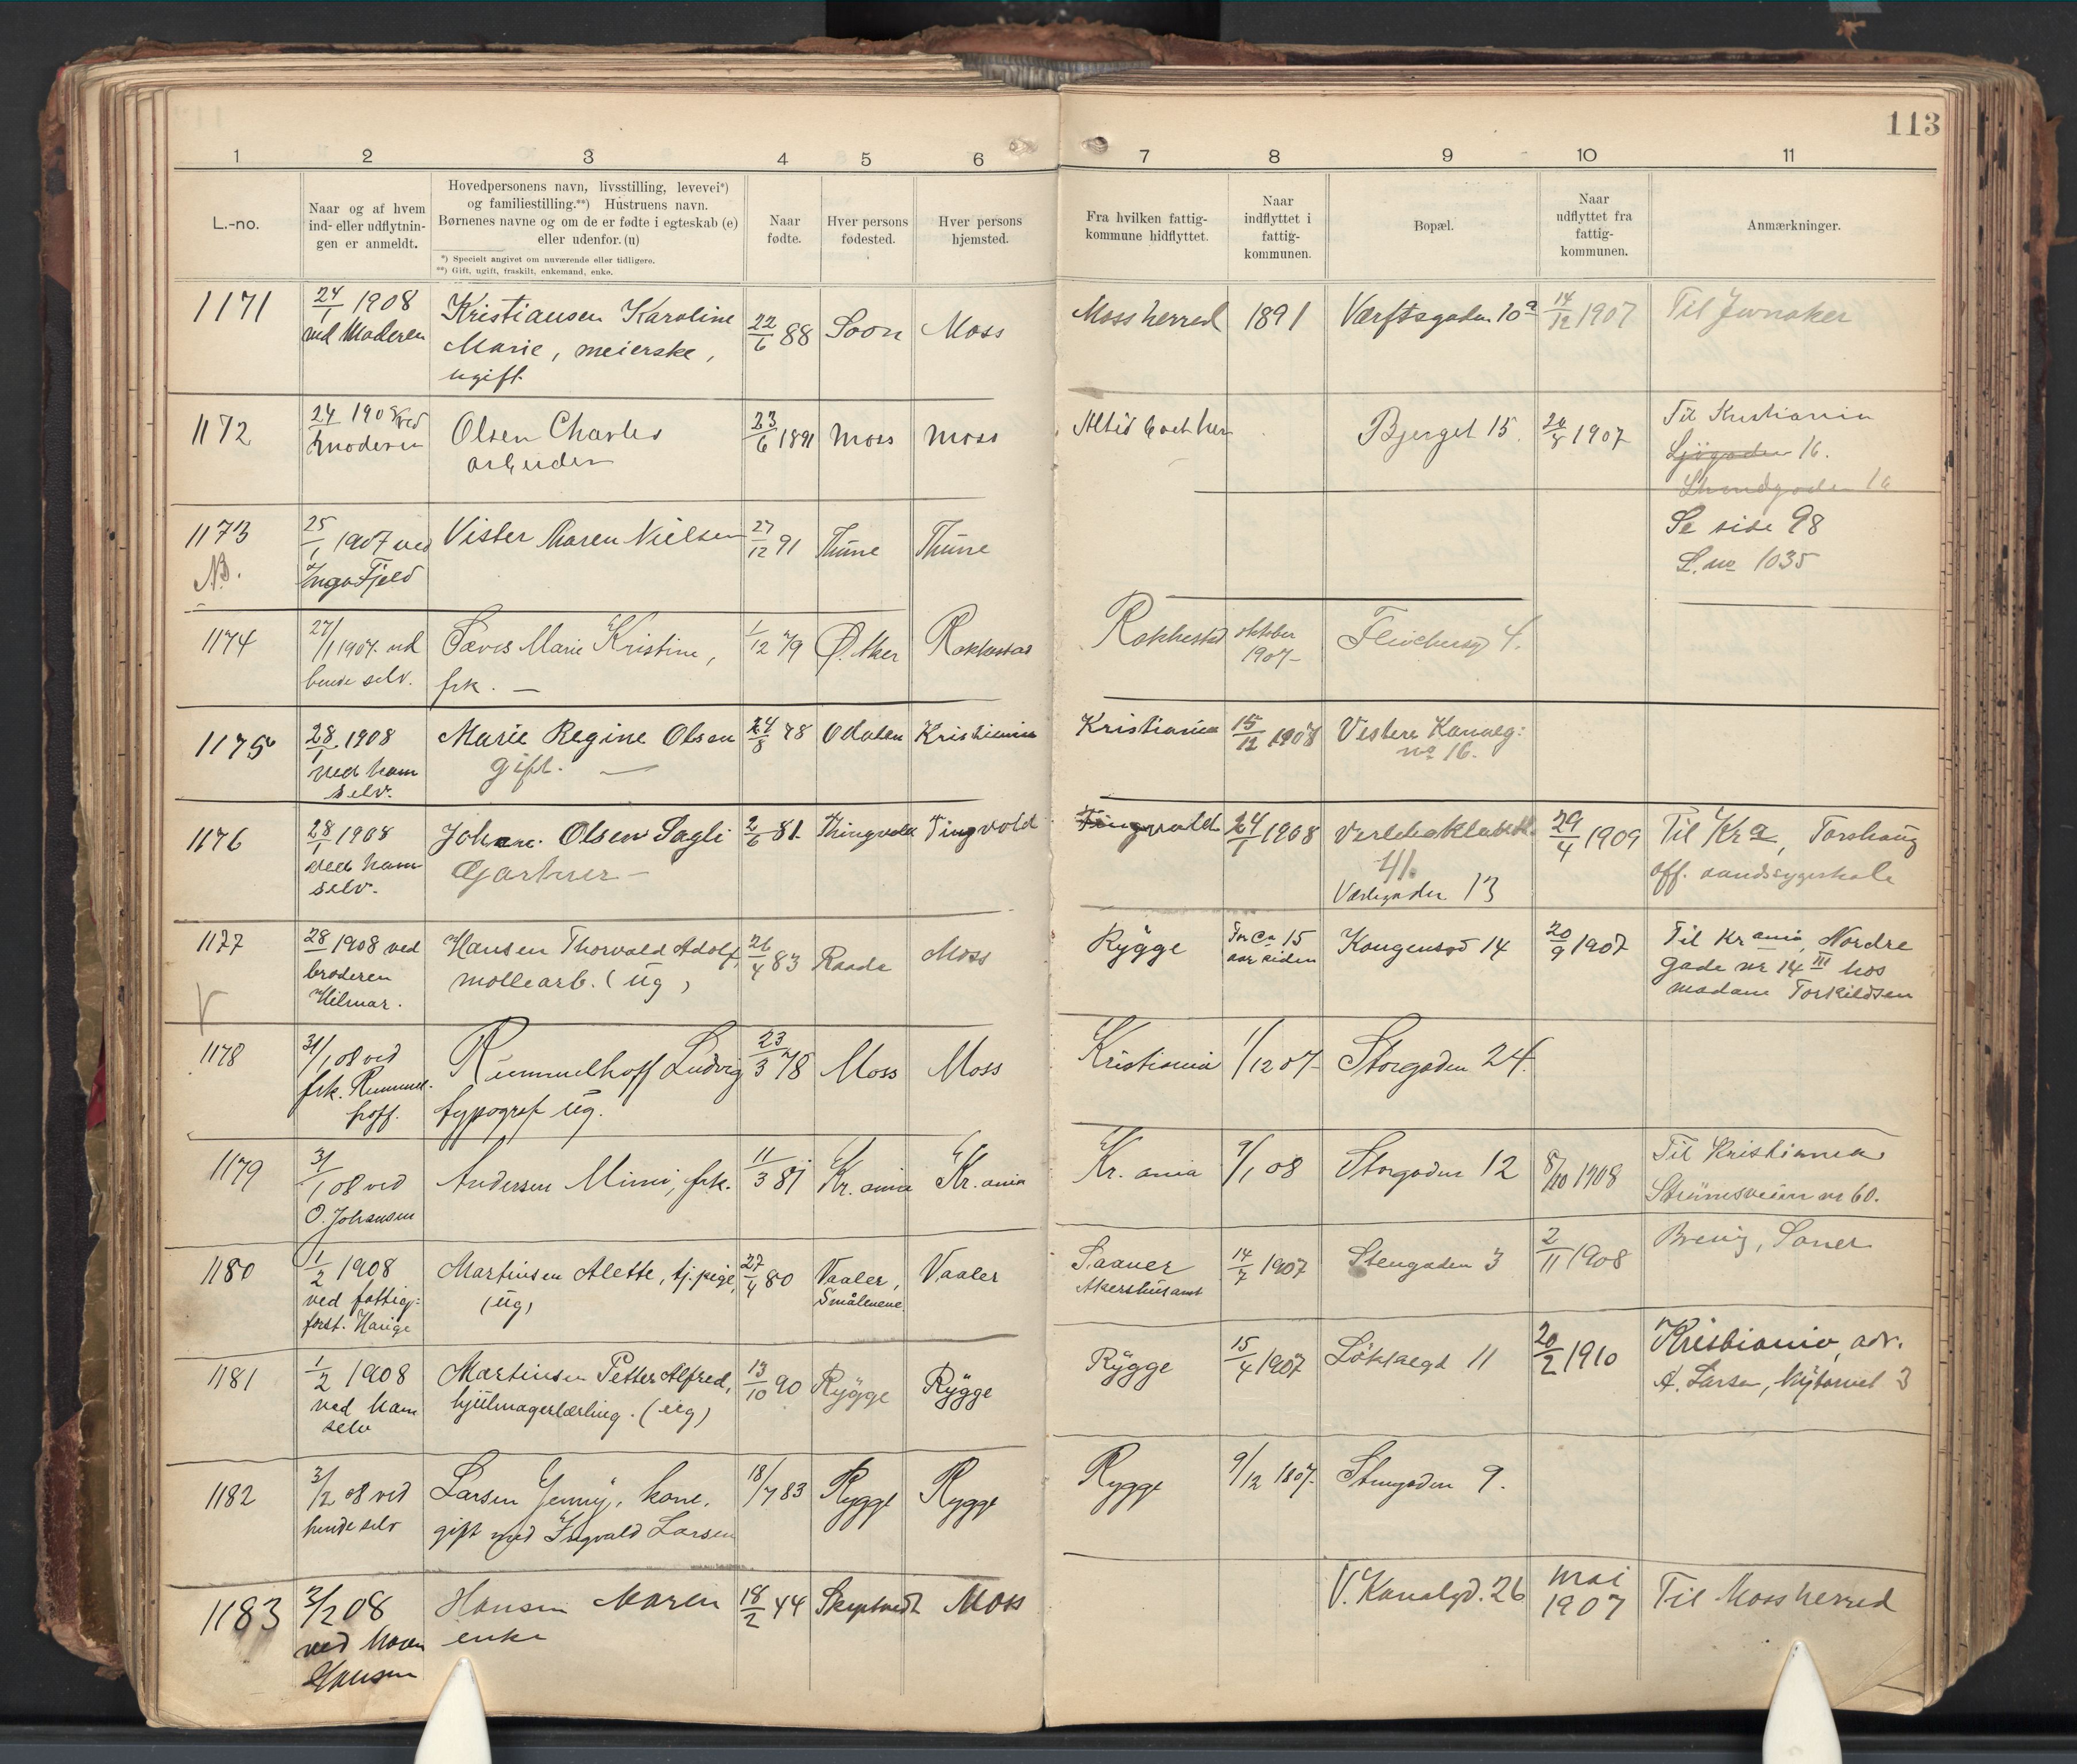 113
1 2 3 4 5 6 7 8 9 10 11
L.-no.
Naar og af hvem
ind- eller udflytnin-
gen er anmeldt.
Hovedpersonens navn, livsstilling, levevei*)
og familiestilling.**) Hustruens navn.
Børnenes navne og om de er fødte i egteskab (e)
eller udenfor. (u)
*) Specielt angivet om nuværende eller tidligere.
**) Gift, ugift, fraskilt, enkemand, enke.
Naar
fødte.
Hver persons
fødested.
Hver persons
hjemsted.
Fra hvilken fattig-
kommune hidflyttet.
Naar
indflyttet i
fattig-
kommunen.
Bopæl.
Naar
udflyttet fra
fattig-
kommunen.
Anmærkninger.
1171 24/1 1908 Kristiansen Karoline 22/6 88 Soon Moss Moss herred 1891 Værftsgaden 10a 14/12 1907 Til Jevnaker
ved Moderen Marie, meierske,
ugift
1172 24 1908 ved Olsen Charles 23/6 1891 Moss Moss Altid boet her Bjerget 15 20/8 1907 Til Kristiania
moderen arbeider
Sjögaden 16.
1173 25/1 1907 ved Vister Maren Nielsen 27/12 91 Thune Thune Se side 98
NB. Inga Fjeld L. no 1035
1174 27/1 1907. ved Marie Kristine, 1/12 79 Ø. Aker Rakkestad Rakkestad oktober 4.
hende selv. frk. — 1907-
1175 28/1 1908 Marie Regine Olsen 24/8 78 Odalen Kristiania Kristiania 15/12 1907 Vestere Kanalg:
ved ham gift. — no 16.
selv.
1176 28/1 1908 Johan. Olsen Sagli 2/6 81 Thingvold Tingvold Tingvold 24/1 1908 29/4 1909 Til Kra, Torshaug
ved ham Gartner — 41. off. aandssygeskole
selv. Værlegaden 13
1177 28 1908 ved Hansen Thorvald Adolf, 26/4 83 Raade Moss Rygge For Ca 15 Kongensgd 14 20/9 1907 Til Krania, Nordre
broderen møllearb. (ug) aar siden gade nr 14 III hos
Hilmar. madam Torkildsen
V
1178 31/1 08 ved Rummelhoff Ludvig 23/3 78 Moss Moss Kristiania 1/12 07- Storgaden 24.
frk. Rummel- typograf ug.
hoff.
1179 31/1 08 ved Andersen Mimi, frk. 11/3 81 Kr. ania Kr. ania Kr. ania 9/1 08 Storgaden 12 8/10 1908 Til Kristiania
O. Johansen Strømsveien nr 60.
1180 1/2 1908 Martinsen Alette, tj. pige, 27/4 80 Vaaler, Vaaler Saaner 14/7 1907 Stengaden 3 2/11 1908 Brevig, Soner
ved fattig- (ug) Smålenene Akershus amt
forst. Hauge
1181 1/2 1908 Martinsen Petter Alfred, 13/10 90 Rygge Rygge Rygge 15/4 1907 Løkkegd 11 20/2 1910 Kristiania, adr.
ved ham hjulmagerlærling. (ug) A. Larsen, Nytorvet 3
selv
1182 3/2 08 ved Larsen Jenny, kone, 18/7 83 Rygge Rygge Rygge 9/12 1807. Stengaden 9.
hende selv gift med Ingvald Larsen
1183 3/2 08 Hansen Maren 18/2 44 Skiptvedt Moss V. Kanalgd. 26 mai Til Moss herred
ved Maren enke 1907
Hansen